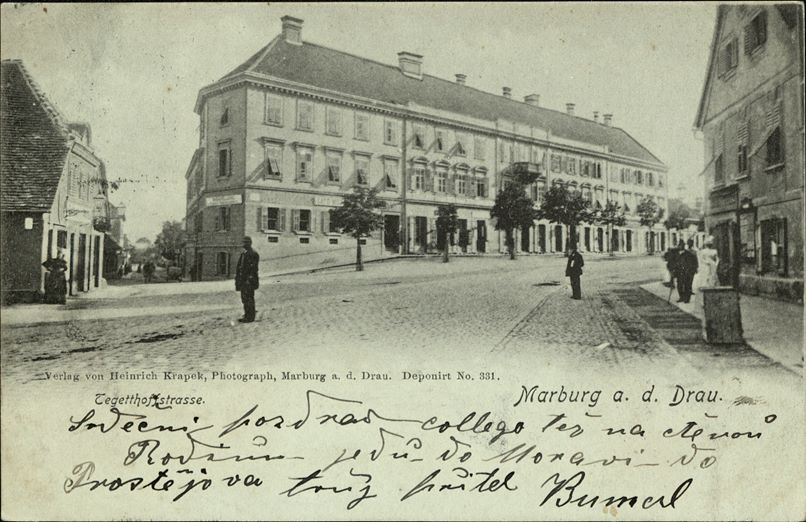 Verlag von Heinrich Krapek, Photograph, Marburg a. d. Drau. Deponirt No. 331.
Tegetthoffstrasse.
Marburg a. d. Drau.
Srdečni pozdrav collego též na ctěnou
Rodinu jedu do Moravi do
Prostějova tvůj přítel